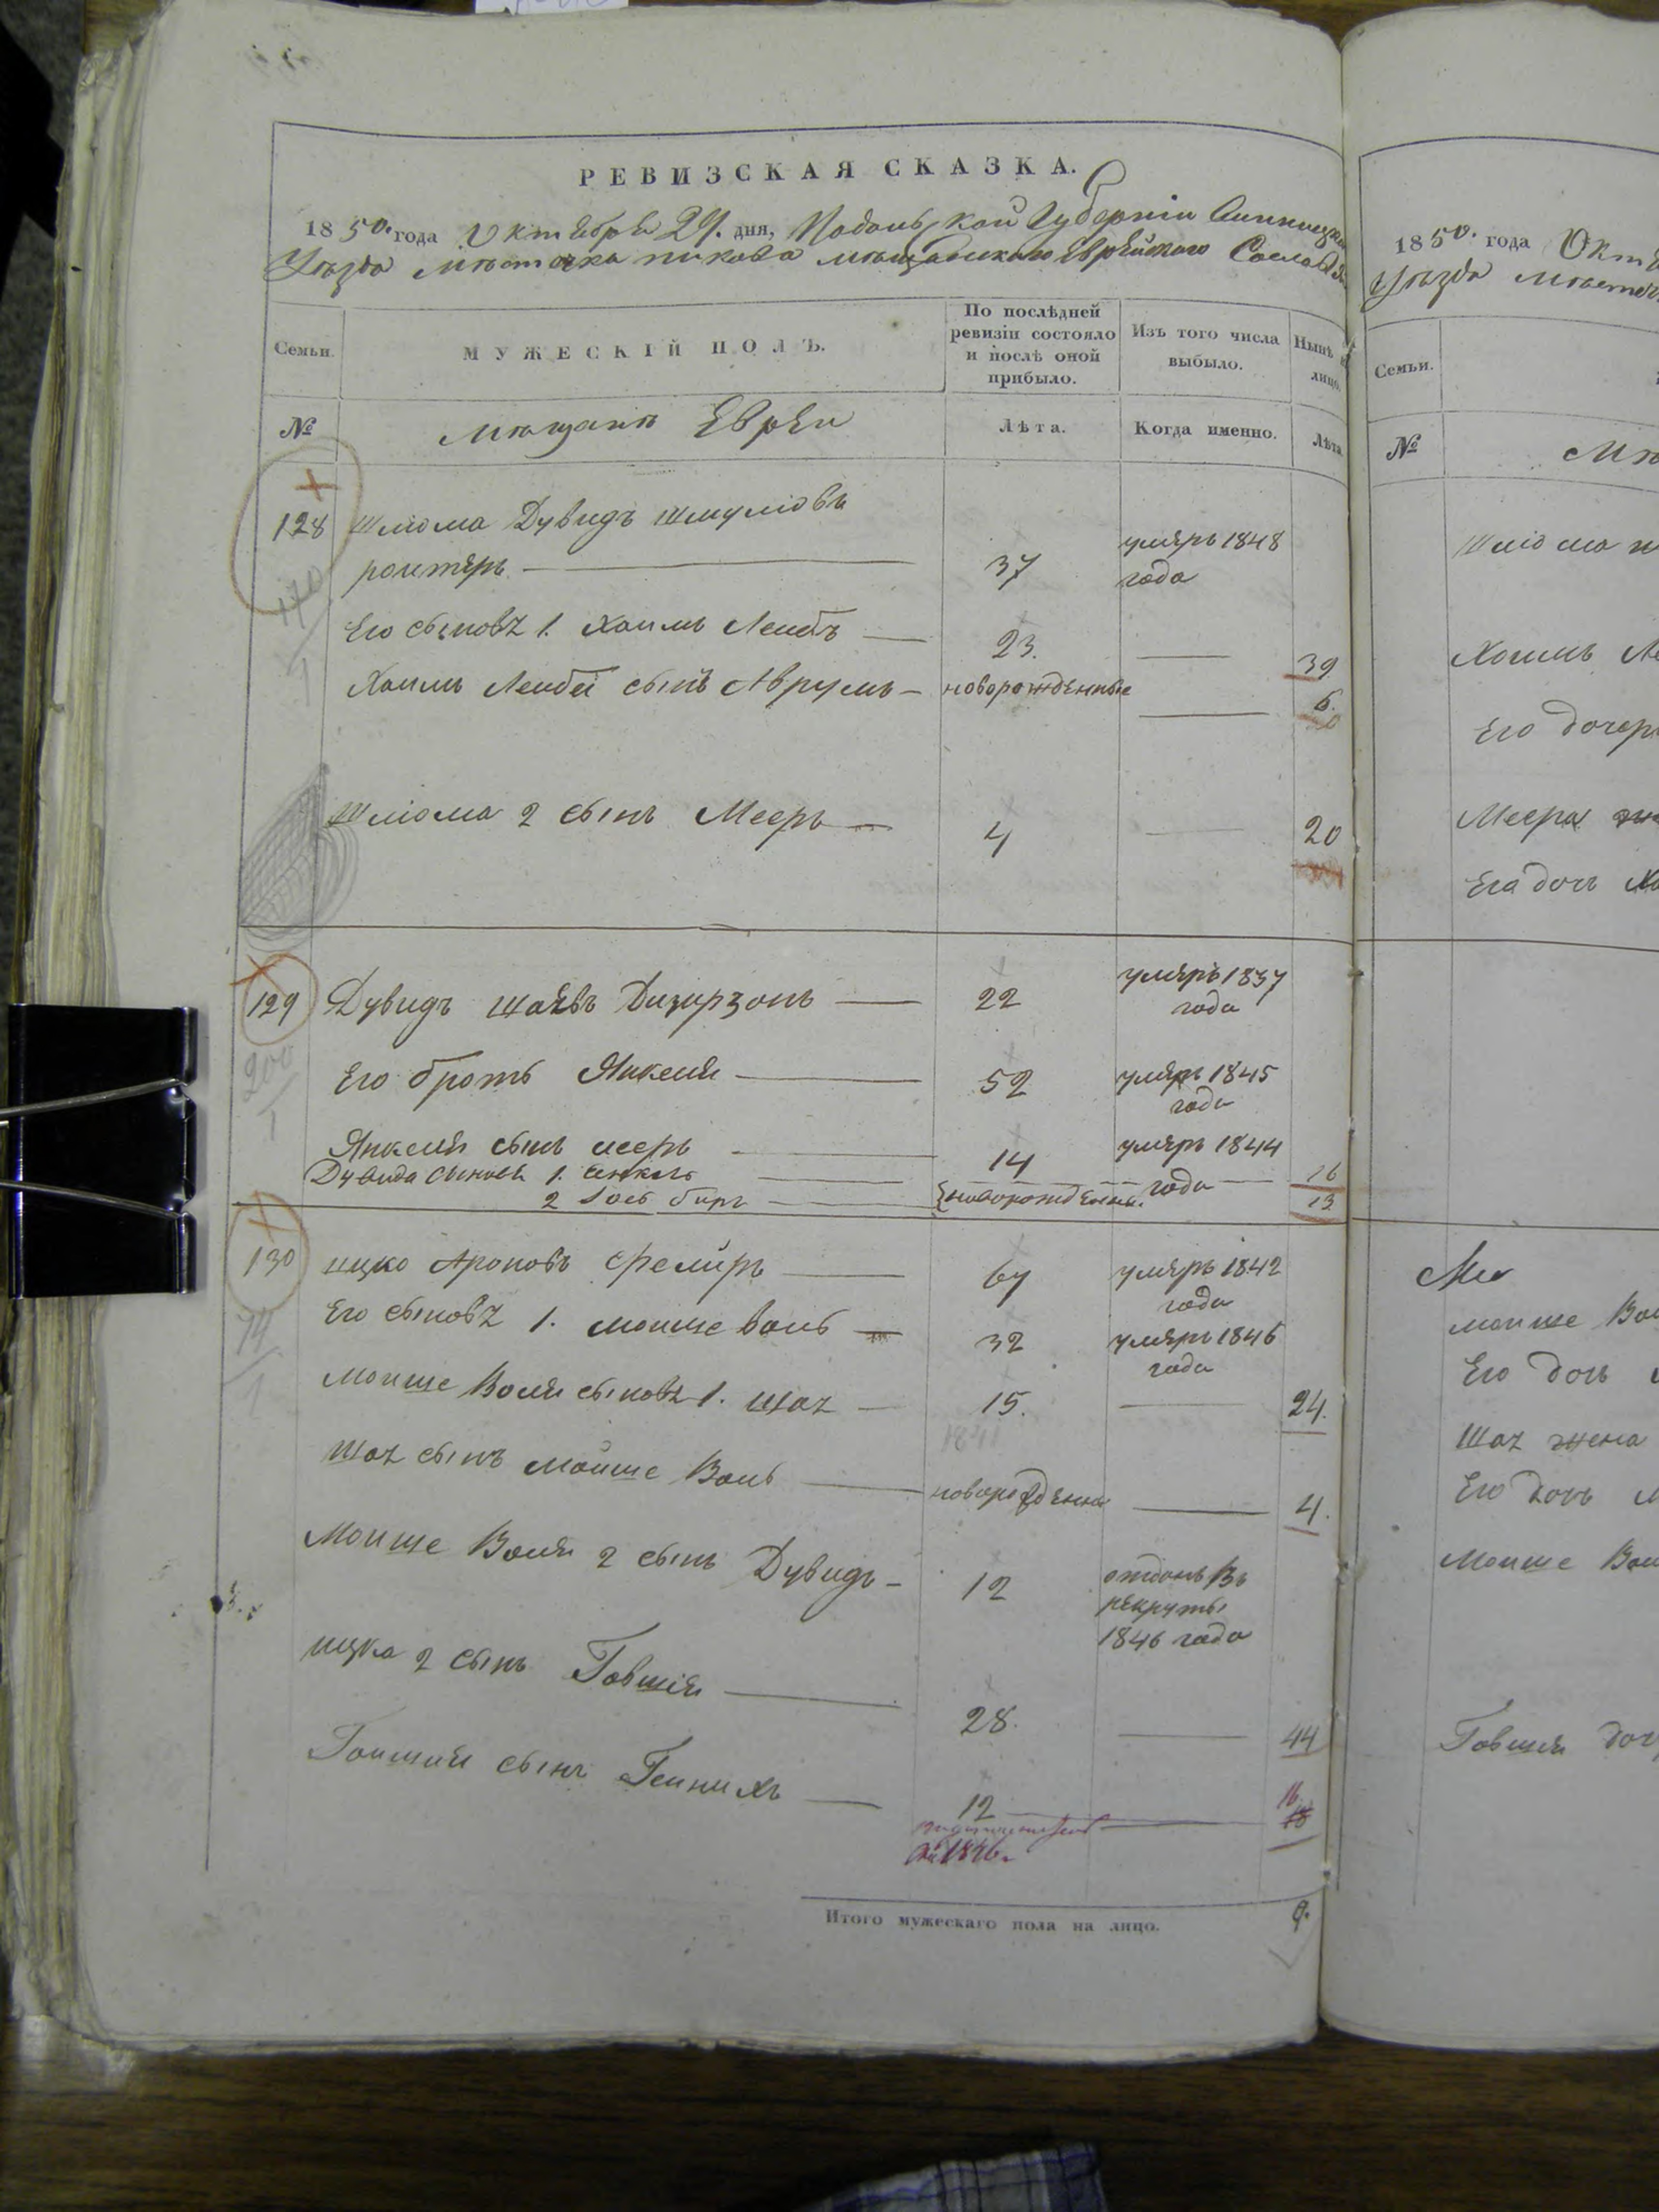 РЕВИЗСКАЯ СКАЗКА.
1850. года Октября 29. дня, Подольской Губерніи Винницкаго
Уѣзда мѣстечка пикова мѣщанскаго Еврейскаго Сословія
Семьи.
МУЖЕСКІЙ ПОЛЪ.
По послѣдней ревизіи состояло и послѣ оной прибыло.
Изъ того числа выбыло.
Нынѣ на лицо.
№
мѣщанъ Евреи
Лѣта.
Когда именно.
Лѣта.
128 Шліома Дувидъ шмуліовъ
роитеръ — 37 умеръ 1848 года
Его сыновя 1. Хаимъ Леибъ — 23. — 39
Хаимъ Леибы сынъ Аврумъ — новорожденные — 6.
170
1
Шліома 2 сынъ Мееръ — 4 — 20
129 Дувидъ шаевъ — 22 умеръ 1837 года
Его братъ Янкель — 52 умеръ 1845 года
200
1
Янкеля сынъ мееръ — 14 умеръ 1844 года
Дувида сыновя 1. — 16
2 — новорожденны. — 13
130 ицко Ароновъ — 67 умеръ 1842 года
Его сыновя 1. моише волъ — 32 умеръ 1846 года
74
1
Моише Воля сыновя 1. шая — 15. — 24.
1841
шая сынъ моише Волъ — новорожденны — 4.
Моише Воля 2 сынъ Дувидъ — 12 отданъ Въ рекруты 1846 года
ицка 2 сынъ Говшія — 28. — 44
Говшии сынъ Геинихъ — 12 — 16
1846
Итого мужескаго пола на лицо. 9.
1850. года Октя
Уѣзда мѣстеч
Семьи.
№
Мѣ
Шліома
Хаимъ Ле
Его дочери
Меера
Его дочь
Мѣ
моише Вол
Его дочь
Шая жена
Его дочь
Моише Вол
Говшея доч